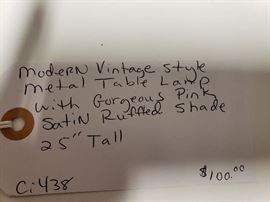 Modern Vintage Style
Metal Table Lamp
with Gorgeous Pink
Satin Ruffled Shade
25" Tall
$100.00
Ci438